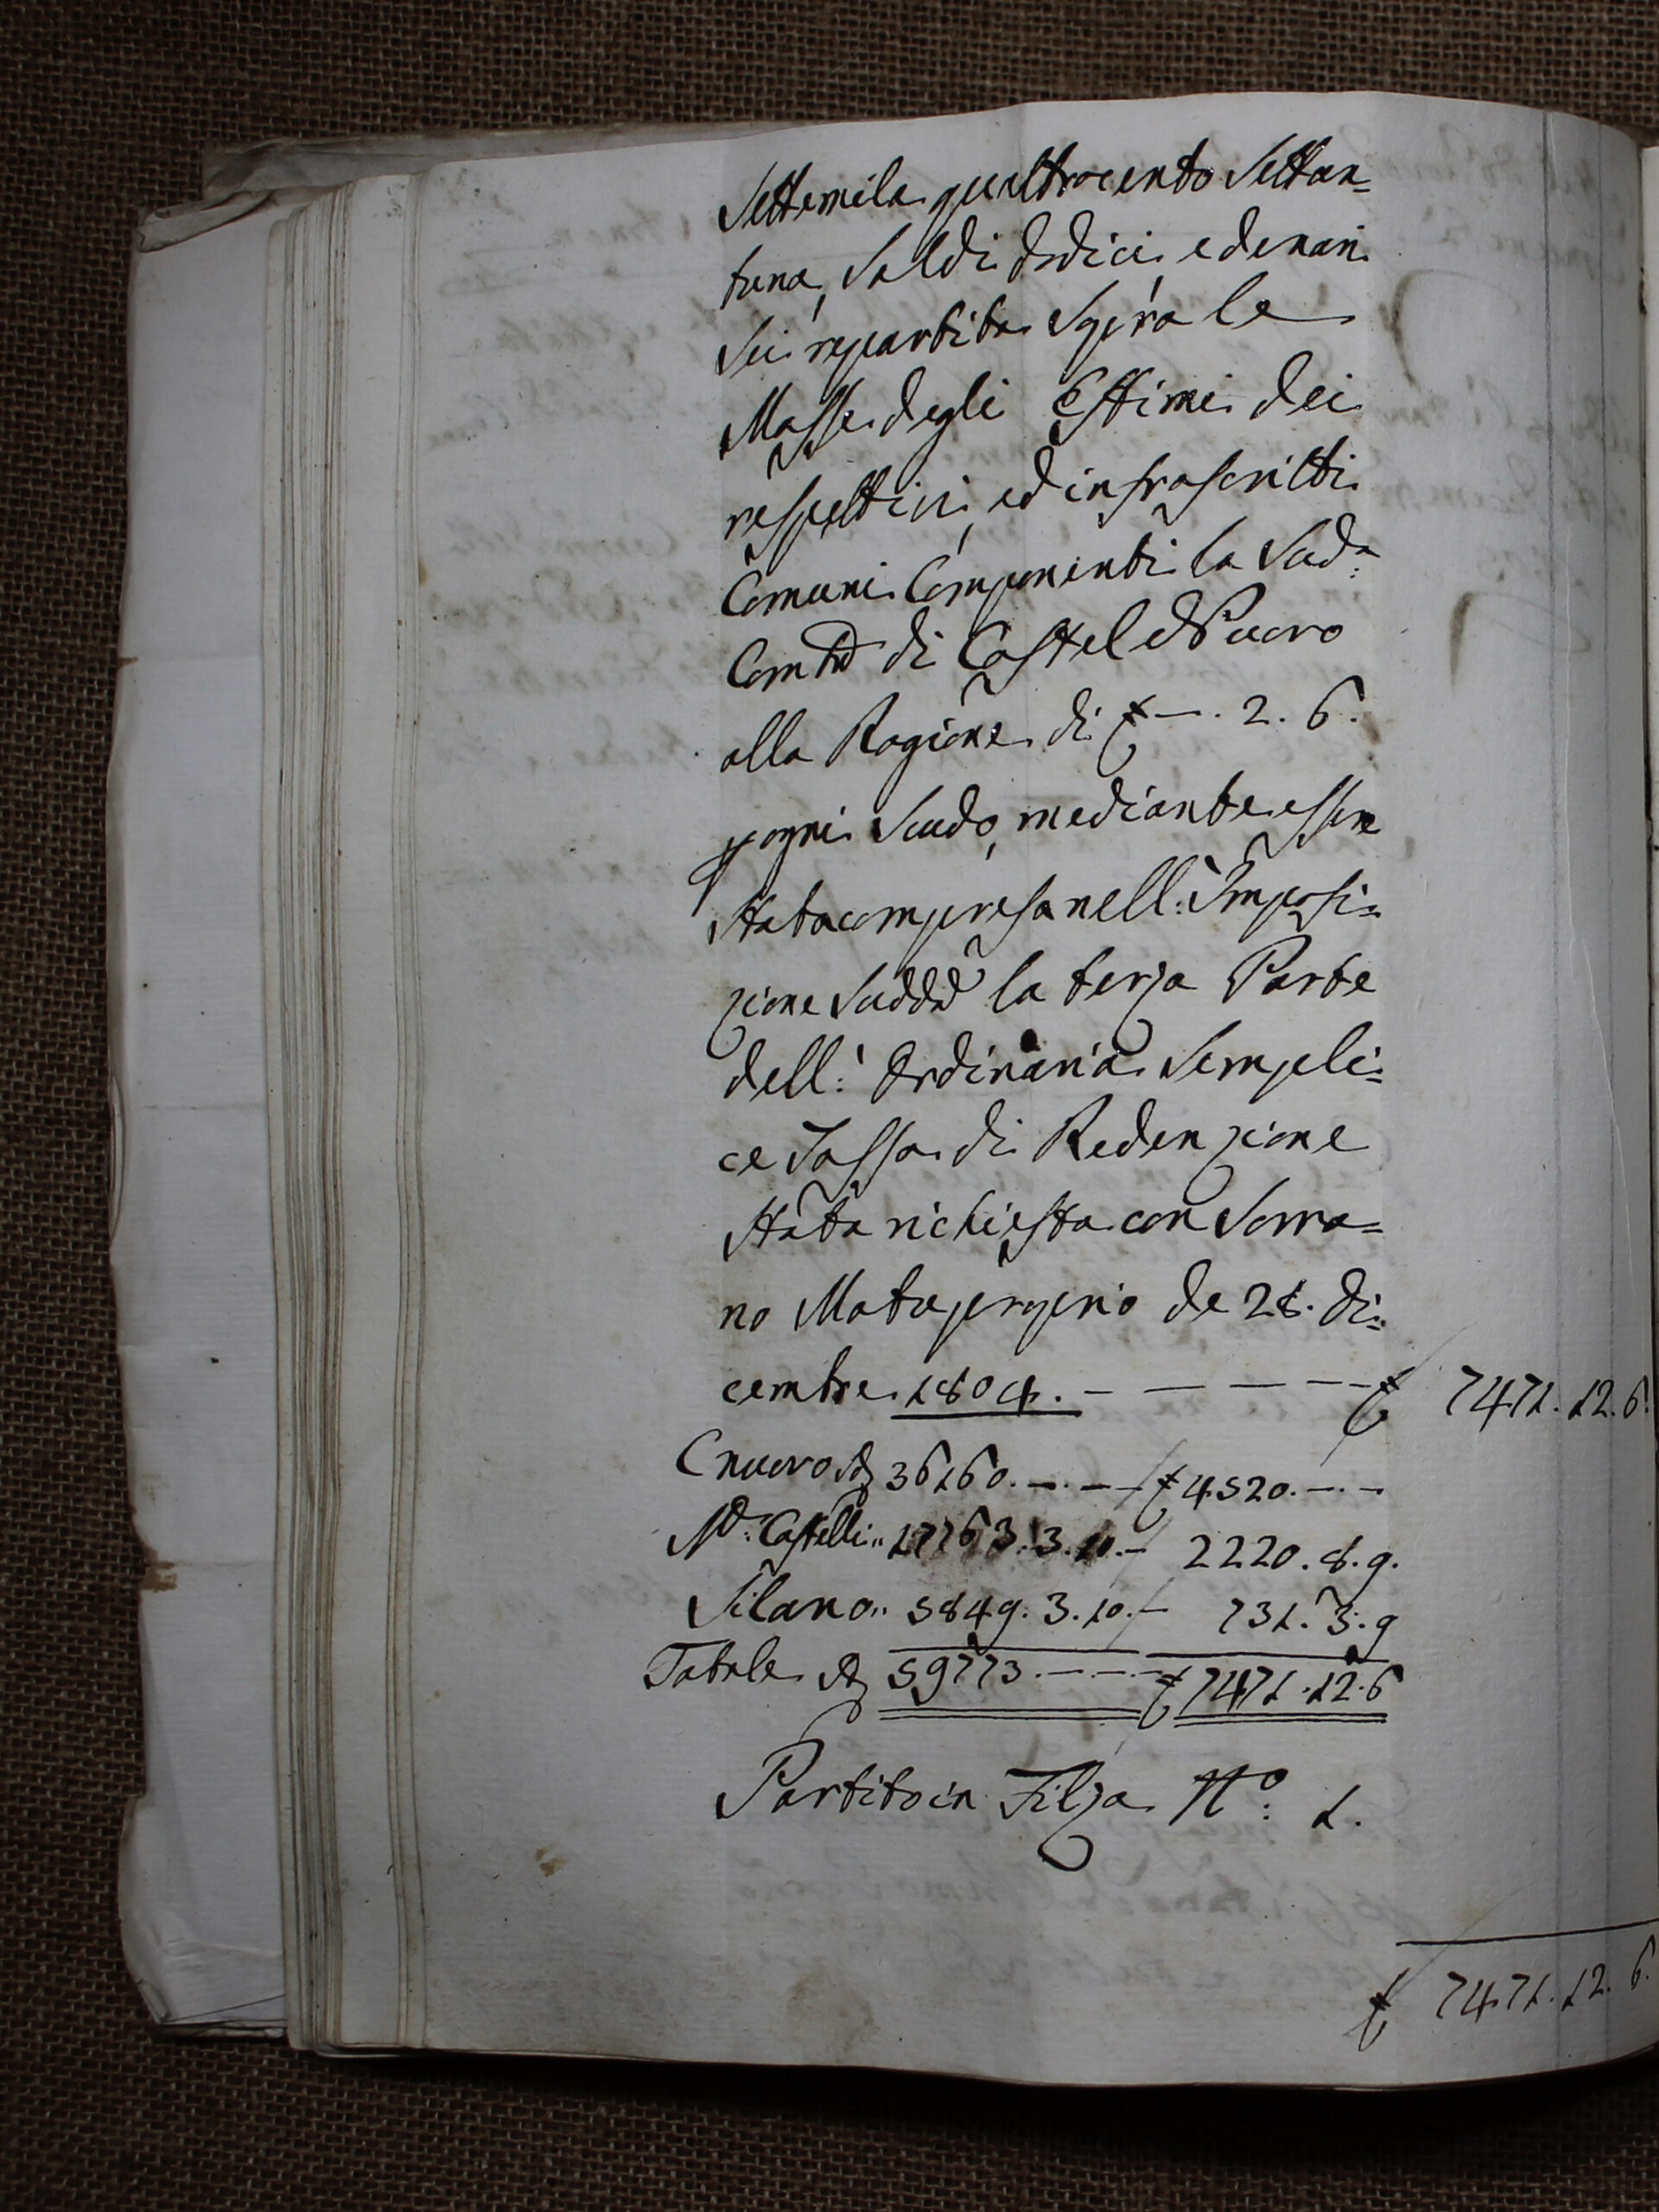 Settemila quattrocento Settan=
tuna, Soldi dodici e denari
Sei repartita Sopra le
Masse degli Estimi dei
respettivi, ed infrascritti
Comuni Componenti la Sud.ª
Com.tà di Castel Nuovo
alla Ragione di £ —. 2. 6.
p ogni Scudo, mediante essere
Stata compresa nell: Imposi=
zione Sudd.ª la terza Parte
dell:' Ordinaria Sempli=
ce Tassa di Redenzione
Stata richiesta con Sovra=
no Motuproprio de 28. di=
cembre 1804. — — — — — £ 7471. 12. 6.
Cnuovo 36160. —. — — £ 4520. —. —
M.e Castelli" 17763. 3. 10. — 2220. 8. 9.
Silano" 5849. 3. 10. — 731. 3. 9
Totale 59773. — — — £ 7471. 12. 6
Partito in Filza N.º: 1.
£ 7471. 12. 6.